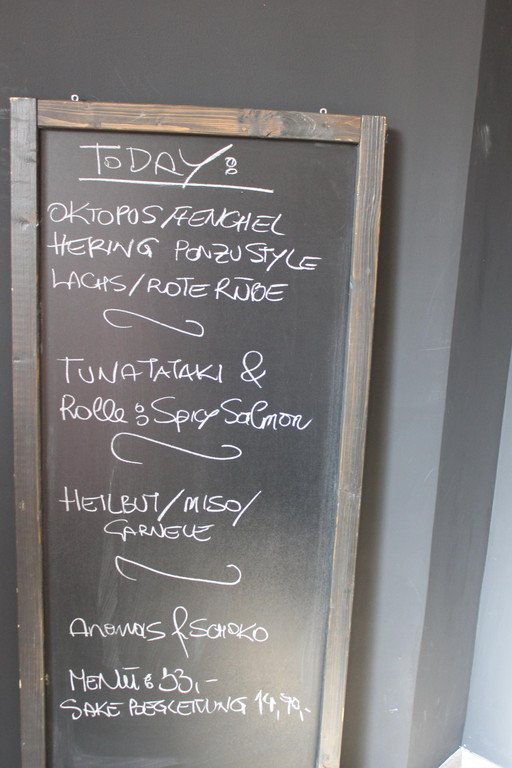 TODAY:
OKTOPOS/FENCHEL
HERING PONZU STYLE
LACHS/ROTE RÜBE
TUNA TATAKI &
Rolle: Spicy Salmon
HEILBUT/MISO/
GARNELE
Ananas & SCHOKO
MENÜ: 53,-
SAKE BEGLEITUNG